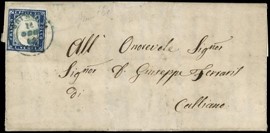 All' Onorevole Signor
Signor D. Giuseppe Ferrari
di
Calliano